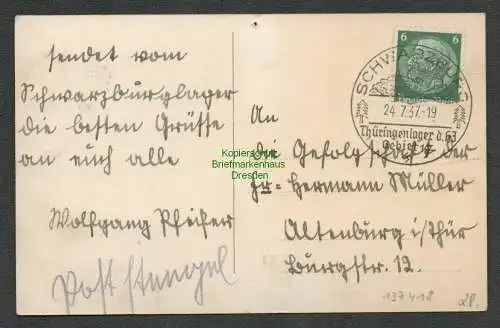 sendet vom
Schwarzburglager
die besten Grüsse
an euch alle
Wolfgang Pfeifer
Poststempel
6 6
SCHWARZBURG
24.7.37.-19
Thüringenlager d. HJ
Gebiet 17
An
die Gefolgschaft der
Fr. Hermann Müller
Altenburg i/Thür
Burgstr. 12.
137418
Kopierschutz
Briefmarkenhaus
Dresden